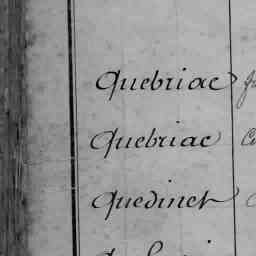 Quebriac
Quebriac
Quedinet